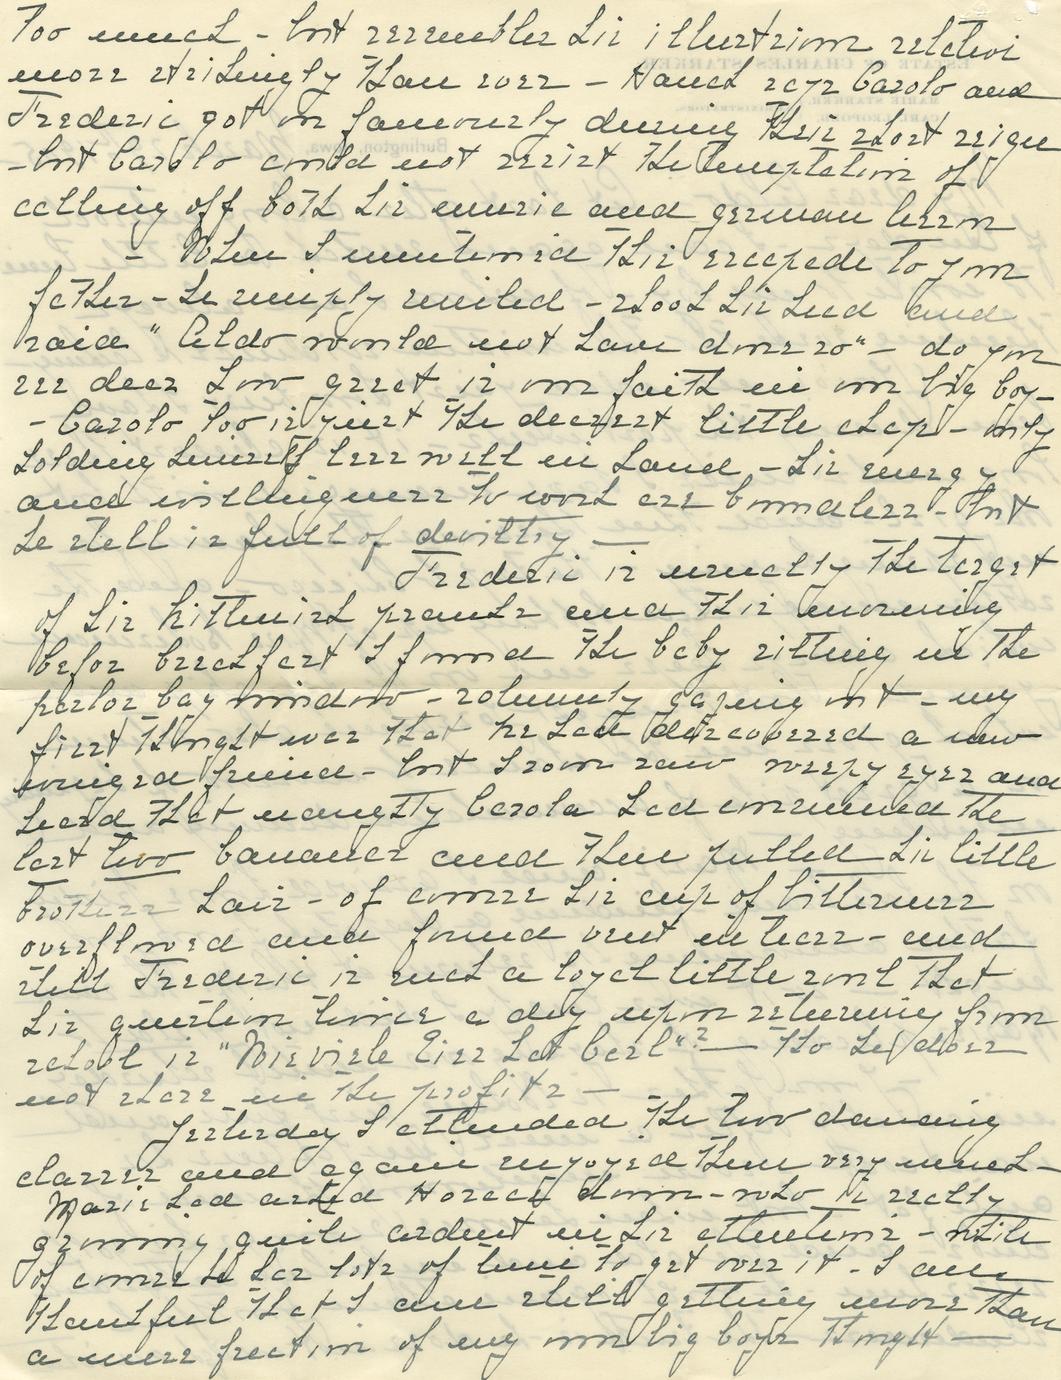 too much - but resembles his illustrious relative
more strikingly than ever - Hanch says Carolo and
Frederic got on famously during their short reign
- but Carolo could not resist the temptation of
calling off both his music and german lesson
- When I mentioned this escapade to your
father - he simply smiled - shook his head and
said "Aldo would not have done so" - do you
see dear how great is our faith in our big boy -
- Carolo too is just the dearest little chap - only
holding himself less well in hand - his energy
and willingness to work are boundless - but
he still is full of deviltry —
Frederic is usually the target
of his kittenish pranks and this morning
befor breakfast I found the baby sitting in the
parlor bay window - solemnly gazing out - my
first thought was that he had discovered a new
winged friend - but I soon saw weepy eyes and
heard that naughty Carola had consumed the
last two bananas and then pulled his little
brothers hair - of course his cup of bitterness
overflowed and found vent in tears - and
still Frederic is such a loyal little soul that
his question twice a day upon returning from
school is "Wie viele Eier hat Carl"? — tho he does
not share in the profits —
Yesterday I attended the two dancing
classes and again enjoyed them very much -
Marie had asked Horace down - who is really
growing quite ardent in his attentions - while
of course he has lots of time to get over it - I am
thankful that I am still getting more than
a mere fraction of my own big boys thought —
ESTATE OF CHARLES STARKER
MARIE STARKER
Burlington, Iowa,